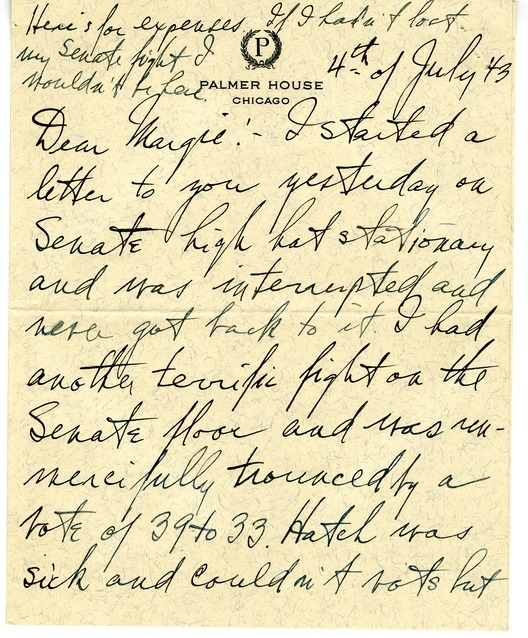 Here's for expenses. If I hadn't lost
my Senate fight I
wouldn't be here.
P
PALMER HOUSE
CHICAGO
4th of July 43
Dear Margie:- I started a
letter to you yesterday on
Senate high hat stationary
and was interrupted and
never got back to it. I had
another terrific fight on the
Senate floor and was un-
mercifully trounced by a
vote of 39 to 33. Hatch was
sick and couldn't vote but